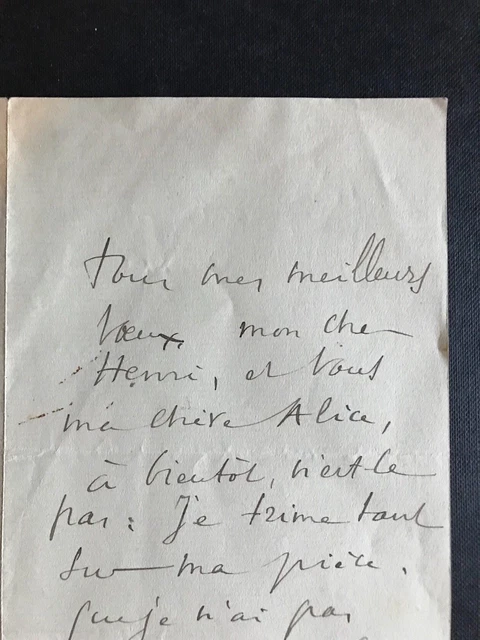 tous mes meilleurs
vœux, mon cher
Henri, et vous
ma chère Alice,
à bientôt, n'est-ce
pas : Je trime tant
sur ma pièce.
que je n'ai pas